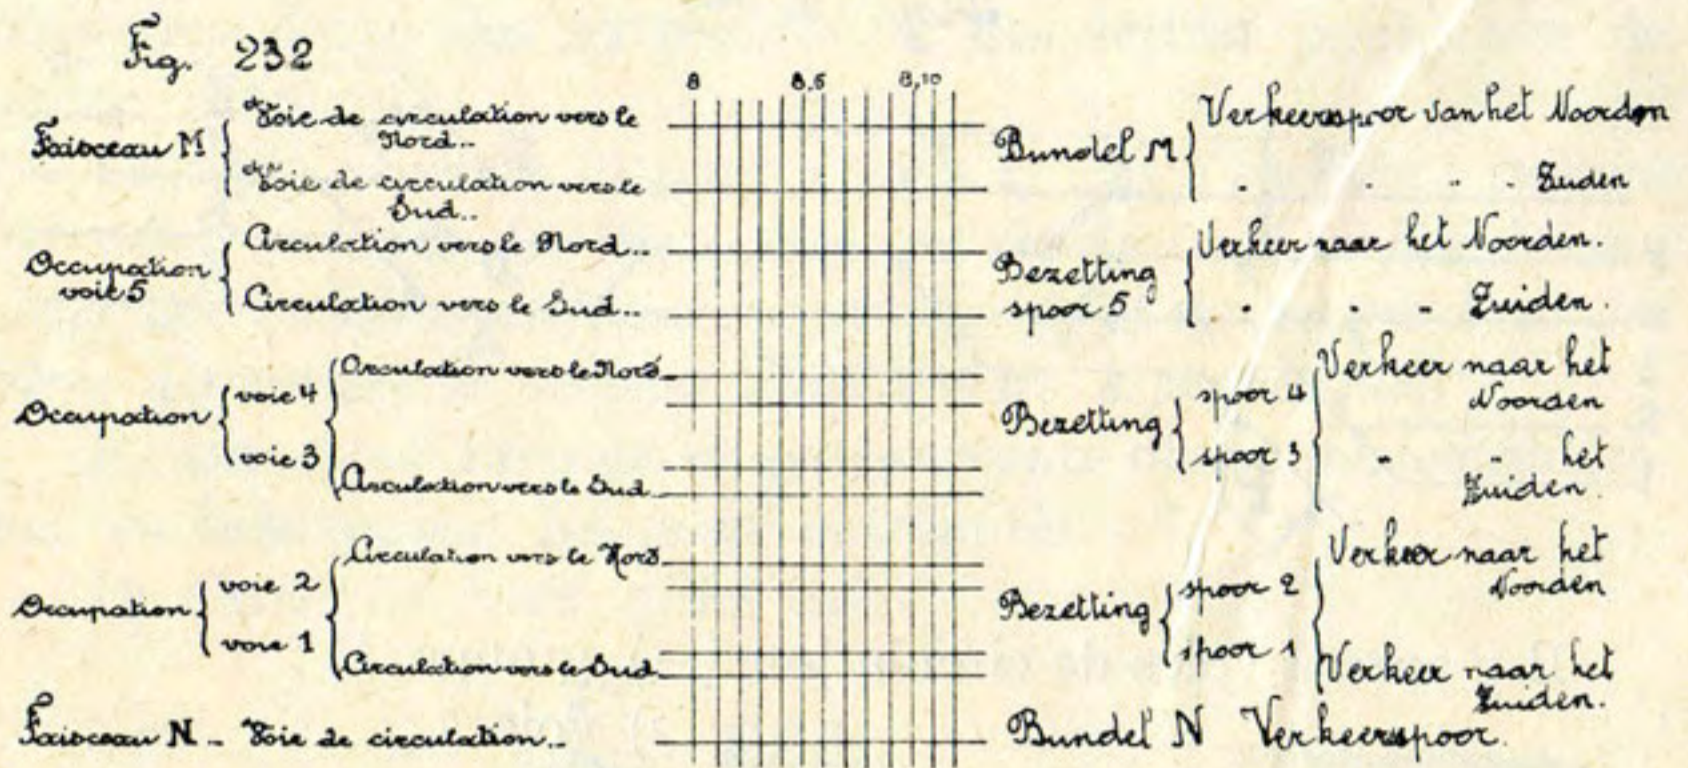 Fig. 232
8 8,5 8,10
Faisceau M
Voie de circulation vers le
Nord..
Voie de circulation vers le
Sud..
Occupation
voie 5
Circulation vers le Nord..
Circulation vers le Sud..
Occupation
voie 4
voie 3
Circulation vers le Nord
Circulation vers le Sud
Occupation
voie 2
voie 1
Circulation vers le Nord
Circulation vers le Sud
Faisceau N - Voie de circulation..
Bundel M
Verkeerspoor van het Noorden
" " " " Zuiden
Bezetting
spoor 5
Verkeer naar het Noorden.
" " " Zuiden.
Bezetting
spoor 4
spoor 3
Verkeer naar het
Noorden
" " het
Zuiden.
Bezetting
spoor 2
spoor 1
Verkeer naar het
Noorden
Verkeer naar het
Zuiden.
Bundel N Verkeerspoor.